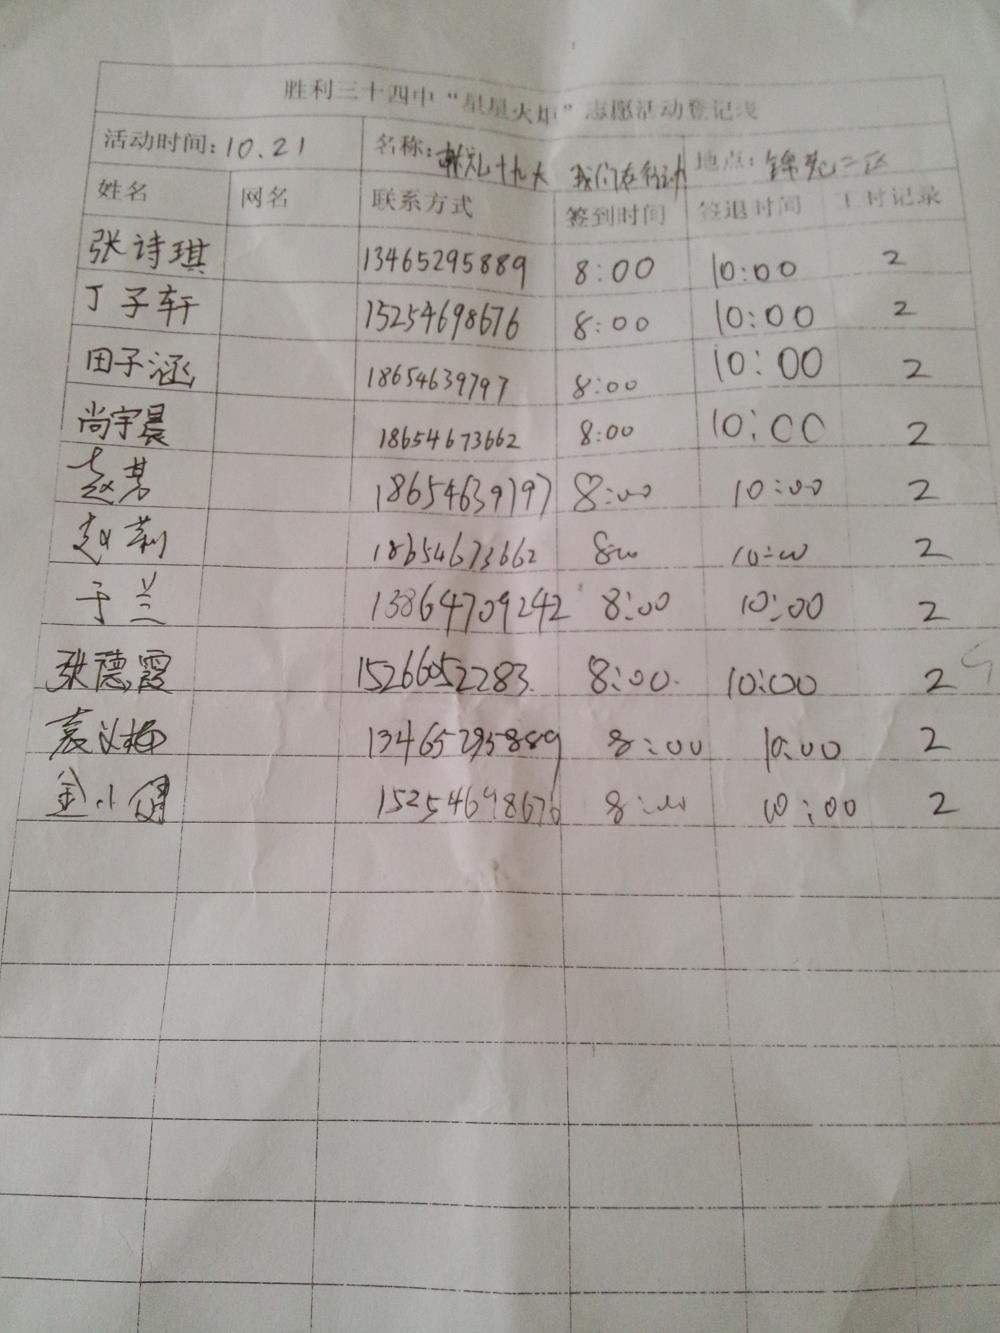 胜利三十四中“星星火炬”志愿活动登记表
活动时间：10.21 名称：献礼十九大 我们在行动 地点：锦苑二区
姓名 网名 联系方式 签到时间 签退时间 工时记录
张诗琪 13465295889 8:00 10:00 2
丁子轩 15254698676 8:00 10:00 2
田子涵 18654639797 8:00 10:00 2
尚宇晨 18654673662 8:00 10:00 2
赵 18654639797 8:00 10:00 2
赵莉 18654673662 8:00 10:00 2
于兰 13864709242 8:00 10:00 2
张德霞 15266052283. 8:00. 10:00 2
袁 梅 13465295889 8:00 10:00 2
金小 15254698676 8:00 10:00 2